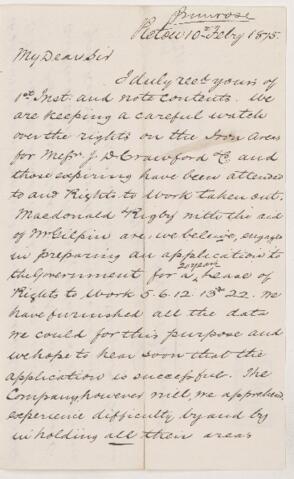 Primrose
Pictou 10th Feby 1875.
My Dear Sir
I duly recd yours of
1st Inst. and note contents. We
are keeping a careful watch
over the rights on the Iron Areas
for Messrs J. D. Crawford & Co. and
those expiring have been attended
to and Rights to Work taken out.
Macdonald & Rigby with the aid
of Mr Gilpin are, we believe, engaged
in preparing an application to
the Government for a 20 years Lease of
Rights to Work 5. 6. 12. 13 22. We
have furnished all the data
we could for this purpose and
we hope to hear soon that the
application is successful. The
Company however will, we apprehend,
experience difficulty by and by
in holding all their areas